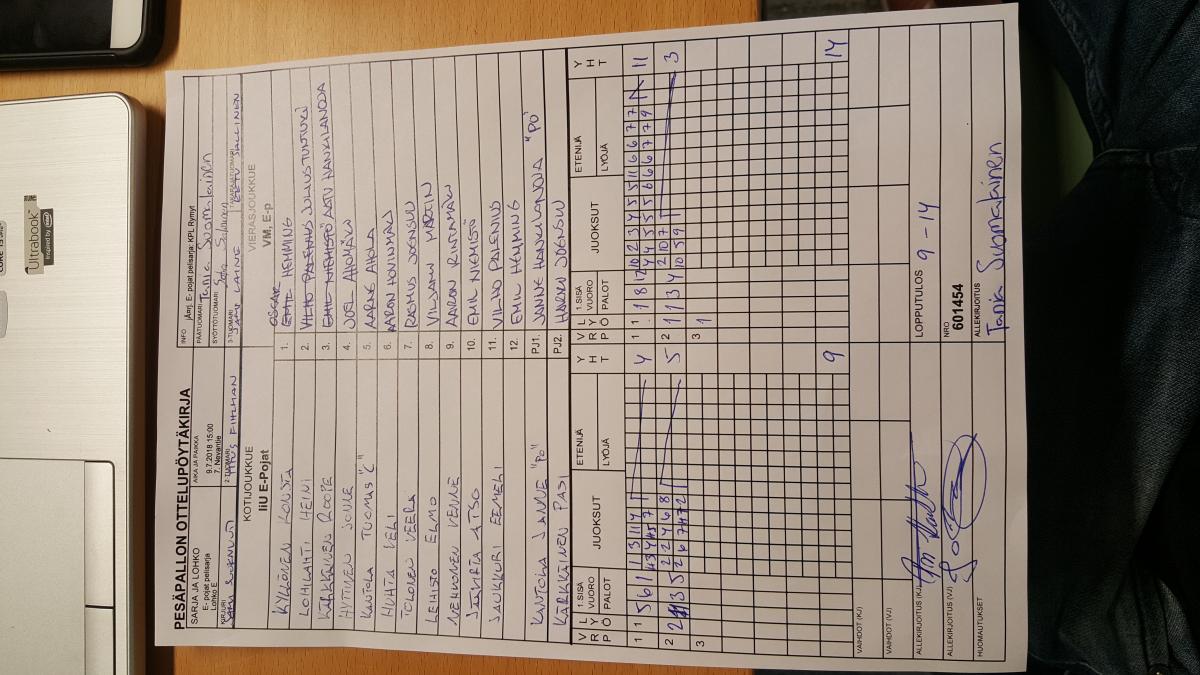 Ultrabook
Inspired by
intel
PESÄPALLON OTTELUPÖYTÄKIRJA
SARJA JA LOHKO
E- pojat pelisarja
Lohko E
AIKA JA PAIKKA
9.7.2018 15:00
7. Nevantie
INFO
KPL Rymyt
PÄÄTUOMARI Tania Suomalainen
SYÖTTÖTUOMARI
2-TUOMARI
3-TUOMARI
KIRJURI
KOTIJOUKKUE
IiU E-Pojat
VIERASJOUKKUE
VM, E-p
KYLLÖNEN KONSTA
LOHILAHTI HEINI
KÄRKKÄINEN ROOPE
HYTINEN JONNE
KANTOLA TUOMAS "C"
HUHTA VELI
TOLONEN VEERA
LEHISTO ELMO
NENONEN VENNE
ATSO
JAUKKURI EEMELI
KANTOLA JANNE "PO"
KÄRKKÄINEN PASI
1. OSCAR EMIL HEMMING
2. VILHO PALENIUS JULIUS TUNTURI
3. EMIL NIEMISTÖ AATU HANKILANOJA
4. JOEL AHOMÄKI
5. AARNE AHOLA
6. AARON HOVINMÄKI
7. RASMUS JOENSUU
8. VILJAMI MARTIN
9. AARON RINTAMÄKI
10. EMIL NIEMISTÖ
11. VILHO PALENIUS
12. EMIL HEMMING
PJ1. JANNE HANKILANOJA "PO"
PJ2. HARRI JOENSUU
V R P L Y Ö 1.SISÄ VUORO PALOT JUOKSUT ETENIJÄ LYÖJÄ Y H T
V R P L Y Ö 1.SISÄ VUORO PALOT JUOKSUT ETENIJÄ LYÖJÄ Y H T
1 1 5 6 1 1 3 1 1 4 4
4 3 4 4 5 7
2 3 5 2 2 4 6 8 5
2 6 7 4 7 2
3
9
1 1 1 8 12 10 12 3 4 5 5 11 6 6 7 7 11
2 4 4 5 5 6 6 6 7 7 9 1
2 1 1 3 4 2 10 7 3
10 5 9
3 1
14
VAIHDOT (KJ)
VAIHDOT (VJ)
LOPPUTULOS 9 - 14
ALLEKIRJOITUS (KJ)
ALLEKIRJOITUS (VJ)
NRO
601454
HUOMAUTUKSET
ALLEKIRJOITUS
Tania Suomalainen